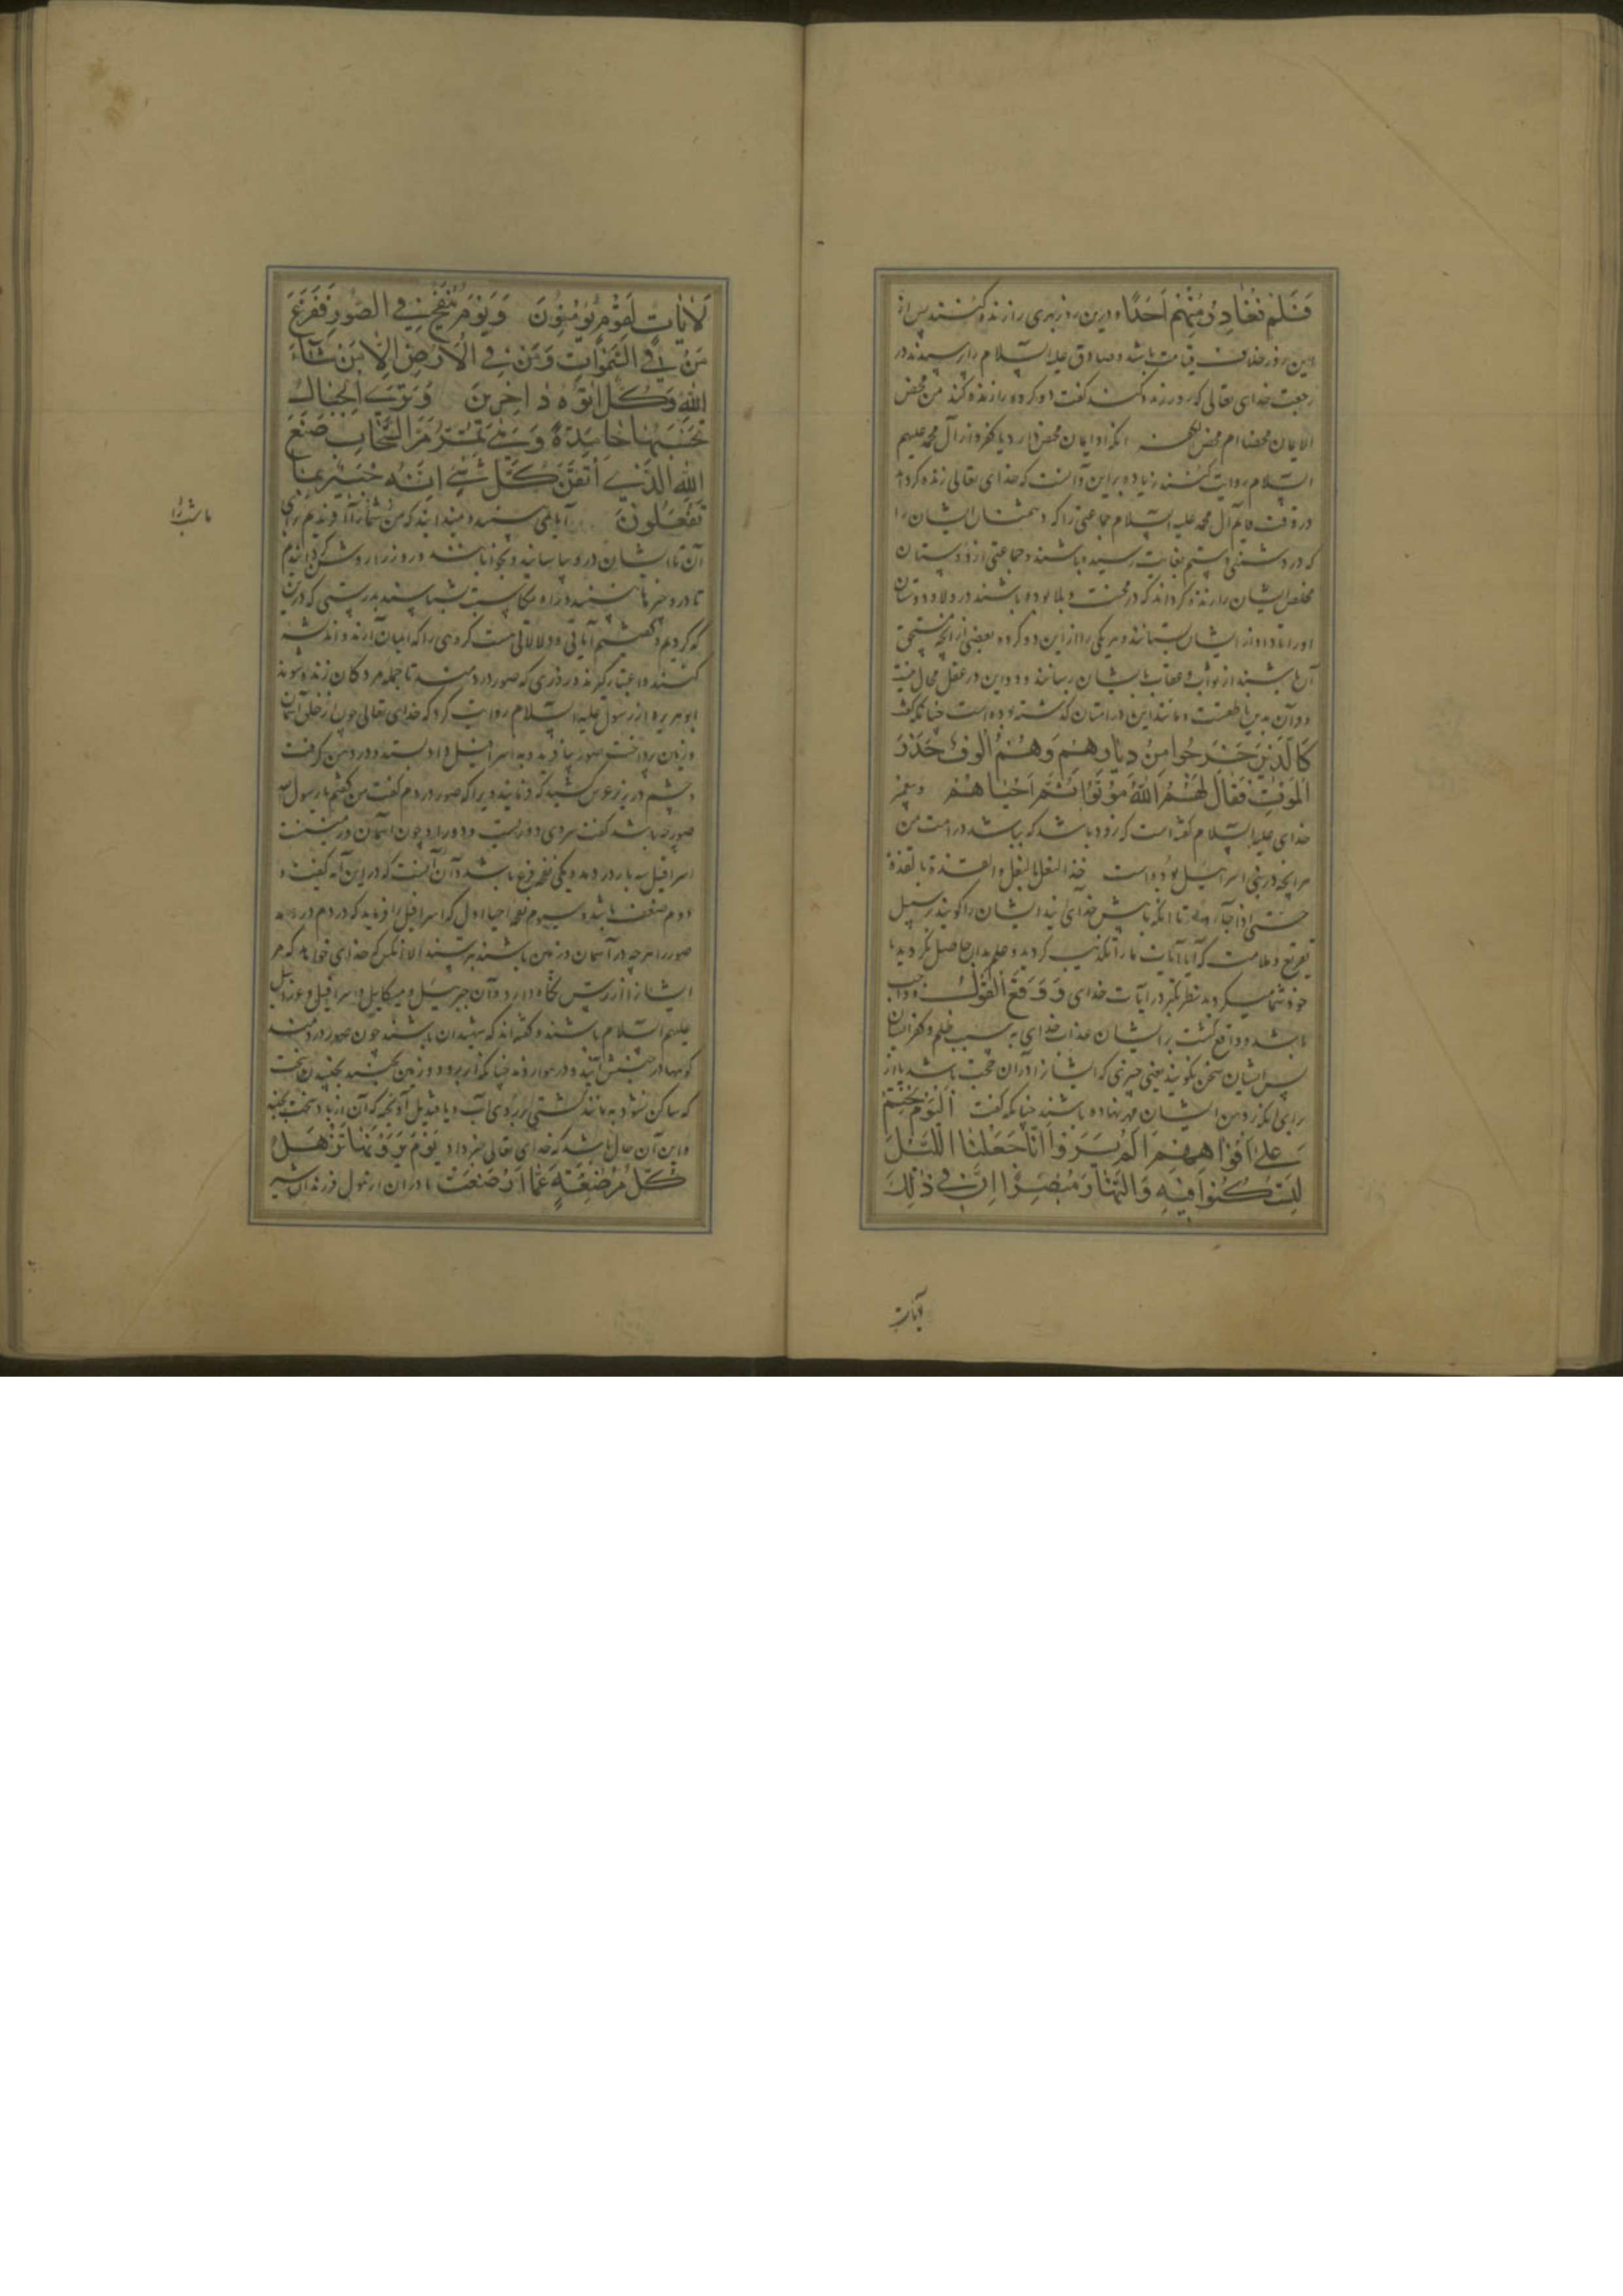 فَلَمْ نُغَادِرْ مِنْهُمْ اَحَدًا و درین روز بهری را زنده کنند پس از
این روز خلاف قیامت باشد و صادق علیه السلام را پرسیدند در
رجعت خدای تعالی که را زنده کند گفت دو کروه را زنده کند من محض
الایمان محضا ام محض الکفر انکه او ایمان محض دارد یا کفر و از آل محمد علیهم
السلام روایت کنند زیاده براین و آنست که خدای تعالی زنده کرداند
در وقت قایم آل محمد علیه السلام جماعتی را که دشمنان ایشان را
که در دشمنی و ستم بغایت رسیده باشند و جماعتی از دوستان
مخلص ایشان را زنده کرداند که در محنت و بلا بوده باشند در ولا و دوستان
او را تا داد از ایشان بستانند و هر یکی را از این دو کروه بعضی از انچه مستحق
آن باشند از ثواب و عقاب بایشان رسانند و این در عقل محال نیست
و قرآن بدین ناطقست و مانند این در امتان کذشته بوده است چنانکه گفت
كَالَّذِينَ خَرَجُوا مِنْ دِيَارِهِمْ وَهُمْ اُلُوفٌ حَذَرَ
الْمَوْتِ فَقَالَ لَهُمُ اللّٰهُ مُوتُوا ثُمَّ اَحْيَاهُمْ و پیغمبر
خدای علیه السلام گفته است که زود باشد که بباشد در امت من
هر انچه در بنی اسرائیل بوده است حذ النعل بالنعل و القذة بالقذة
حتی اذا جاؤا تا انکه که پیش خدای آیند ایشان را کویند بر سبیل
تقریع و ملامت که آیا آیات ما را تکذیب کردید و علم بدان حاصل نکردید یا
خود شما چه میکردید بنظر نکردن در آیات خدای وَ وَقَعَ الْقَوْلُ و واجب
باشد و واقع گشت بر ایشان عذاب خدای به سبب ظلم و کفر ایشان
پس ایشان سخن نکویند یعنی چیزی که ایشان را در آن حجت باشد یا از
برای انکه بر دهن ایشان مهر نهاده باشند چنانکه گفت اَلْيَوْمَ نَخْتِمُ
عَلٰى اَفْوَاهِهِمْ اَلَمْ يَرَوْا اَنَّا جَعَلْنَا اللَّيْلَ
لِيَسْكُنُوا فِيهِ وَالنَّهَارَ مُبْصِرًا اِنَّ فِي ذٰلِكَ
آیات
لَاٰيَاتٍ لِقَوْمٍ يُؤْمِنُونَ وَيَوْمَ يُنْفَخُ فِي الصُّورِ فَفَزِعَ
مَنْ فِي السَّمٰوَاتِ وَمَنْ فِي الْاَرْضِ اِلَّا مَنْ شَاءَ
اللّٰهُ وَكُلٌّ اَتَوْهُ دَاخِرِينَ وَتَرَى الْجِبَالَ
تَحْسَبُهَا جَامِدَةً وَهِيَ تَمُرُّ مَرَّ السَّحَابِ صُنْعَ
اللّٰهِ الَّذِي اَتْقَنَ كُلَّ شَيْءٍ اِنَّهُ خَبِيرٌ بِمَا
تَفْعَلُونَ آیا نمی بینند و نمیدانند که من شب را آفریدم برای
آن تا ایشان در و بیاسایند و بخوابند و روز را روشن کردانیدم
تا در و چیزها ببینند و راه بکاسبت شناسند بدرستی که درین
که کردیم و گفتیم آیاتی و دلالاتی هست کروهی را که ایمان آرند و اندیشه
کنند و اعتبار گیرند در روزی که صور در دمند تا جمله مردکان زنده شوند
ابوهریره از رسول علیه السلام روایت کرد که خدای تعالی چون از خلق آسمان
و زمین پرداخت صور بیافرید و به اسرافیل داد بستد و در دهن گرفت
و چشم در زیر عرش کشید که فرمایند ویرا که صور در دم گفت من گفتم یا رسول الله
صور چه باشد گفت سروی و
اسرافیل سه بار در دمد و یکی نفخه فزع باشد و آن آنست که در این آیه گفت و
دوم صعق باشد و سیوم نفخه احیا اول که اسرافیل را فرماید که در دم در دمد
صور را هر چه در آسمان و زمین باشند بترسند الا آنکس که خدای خواهد که مر
ایشان را از ترس نگاه دارد و آن جبرئیل و میکائیل و اسرافیل و عزرائیل
علیهم السلام باشند و گفته اند که شهیدان باشند چون صور در دمند
کوهها در جنبش آیند و در هوا روند چنانکه ابر رود و زمین بجنبد بجنبیدن سخت
که ساکن نشود به مانند کشتی بر روی آب و یا قندیل آویخته که آن از باد سخت بجنبد
و این آن حال باشد که خدای تعالی خبر داد يَوْمَ تَرَوْنَهَا تَذْهَلُ
كُلُّ مُرْضِعَةٍ عَمَّا اَرْضَعَتْ مادران از هول فرزندان شیر
ما شب را